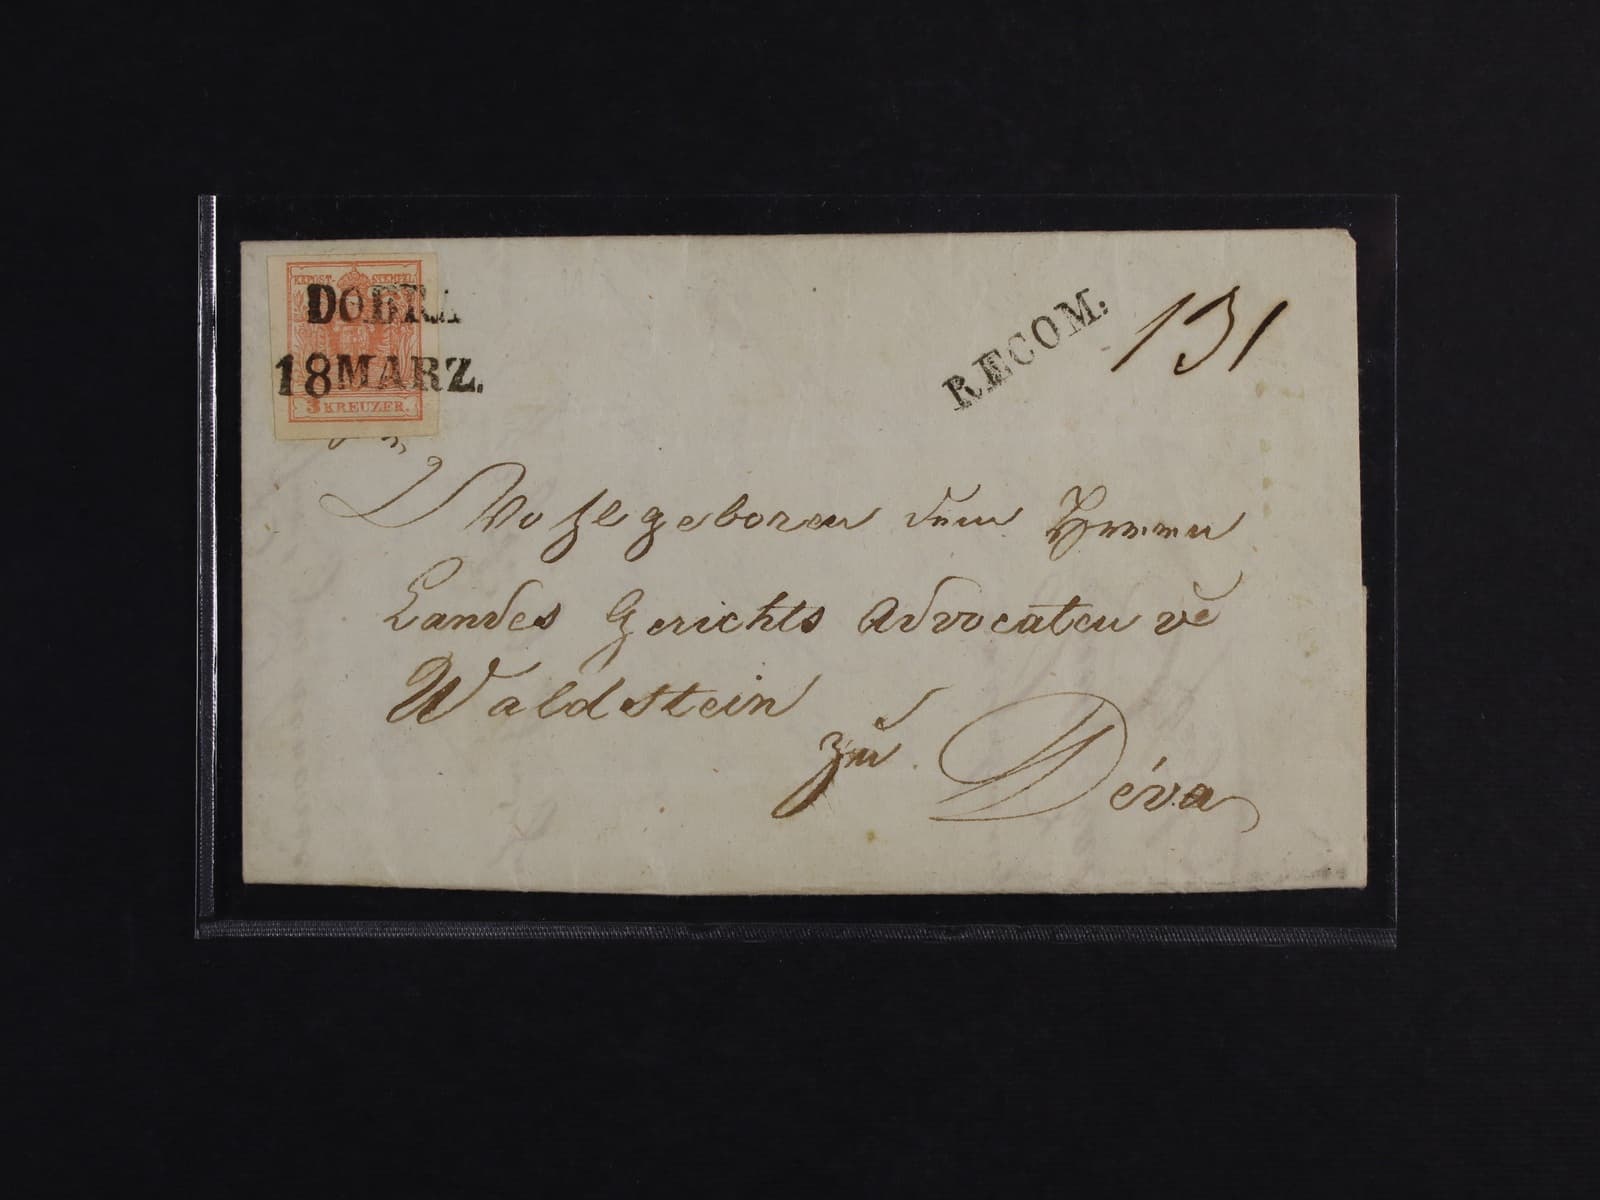 KKPOST-STEMPEL
DOBRA
18 MARZ.
3 KREUZER.
RECOM:
131
Wohlgeboren dem Herrn
Landes Gerichts Advocaten v
Waldstein
zu Déva